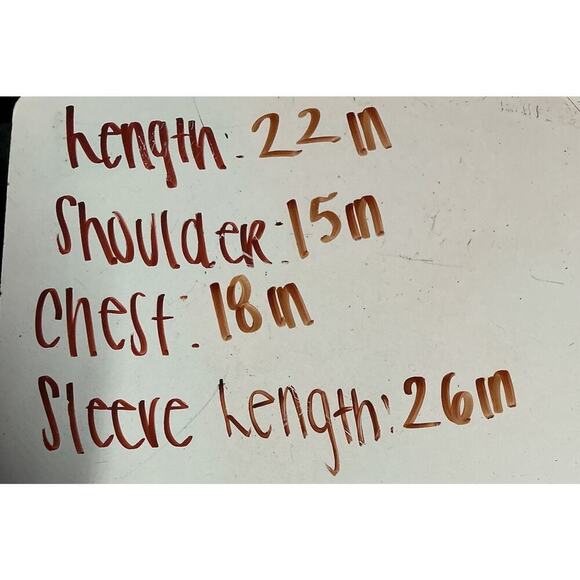 Length: 22 in
Shoulder: 15 in
Chest: 18 in
Sleeve Length: 26 in